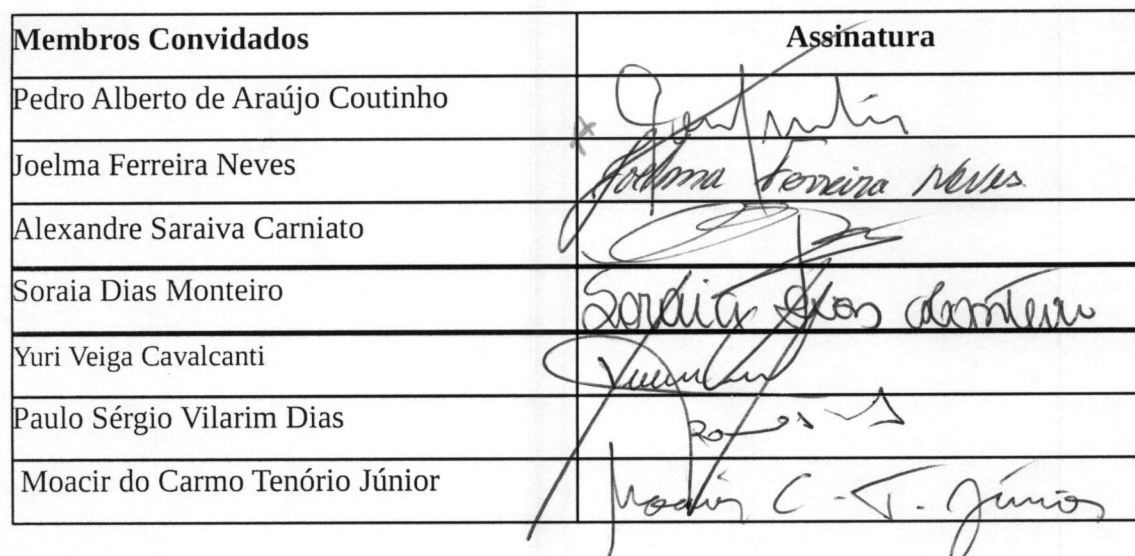 Membros Convidados Assinatura
Pedro Alberto de Araújo Coutinho
Joelma Ferreira Neves Joelma Ferreira Neves
Alexandre Saraiva Carniato
Soraia Dias Monteiro Soraia Dias Monteiro
Yuri Veiga Cavalcanti
Paulo Sérgio Vilarim Dias
Moacir do Carmo Tenório Júnior Moacir C. T. Júnior